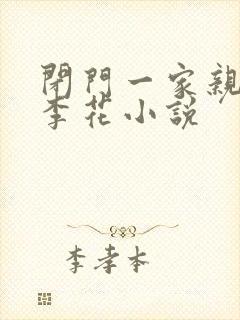 閉門一家親
李花小說
李孝本